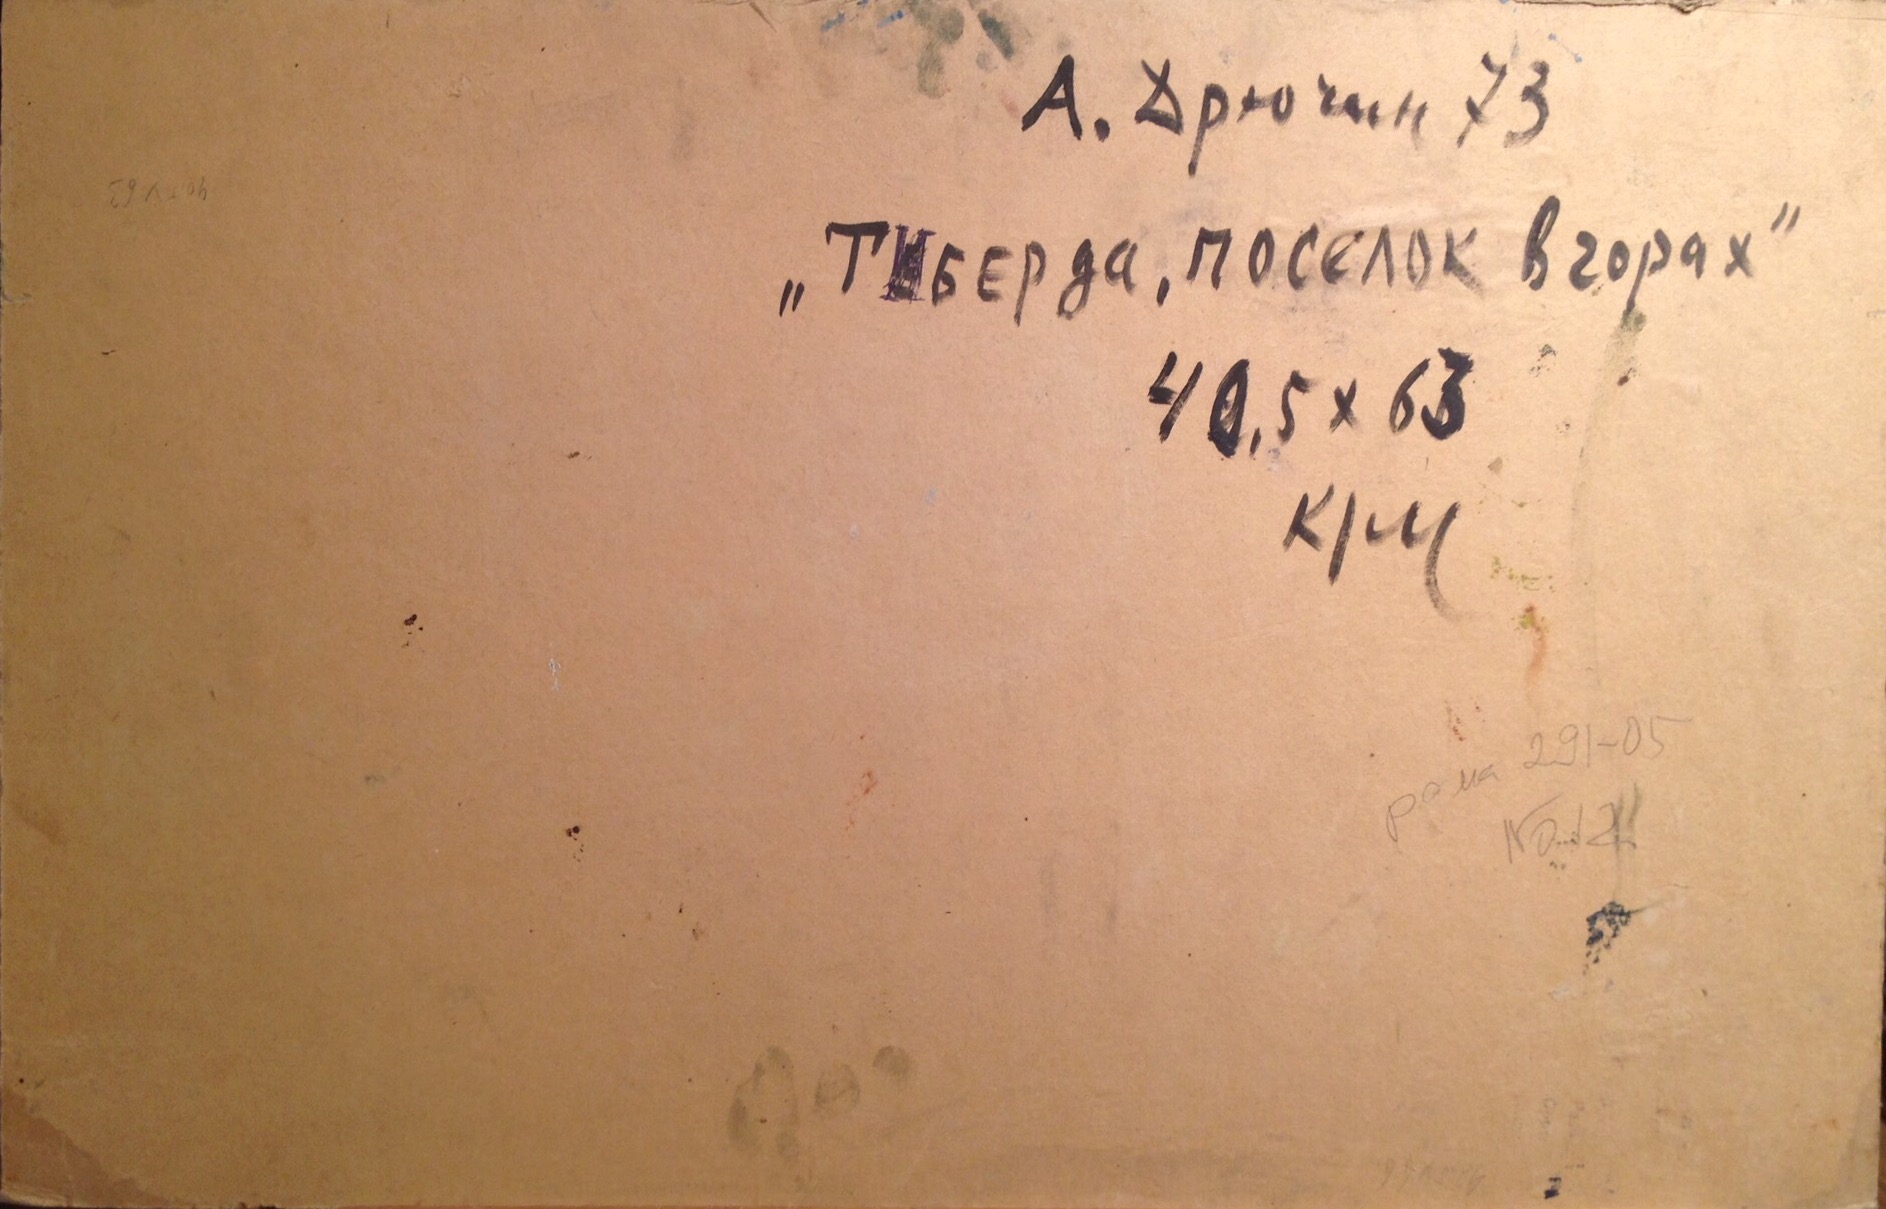 А. Дрючин 73
„Тиберда, поселок в горах”
40,5 х 63
К/М
рама 291-05